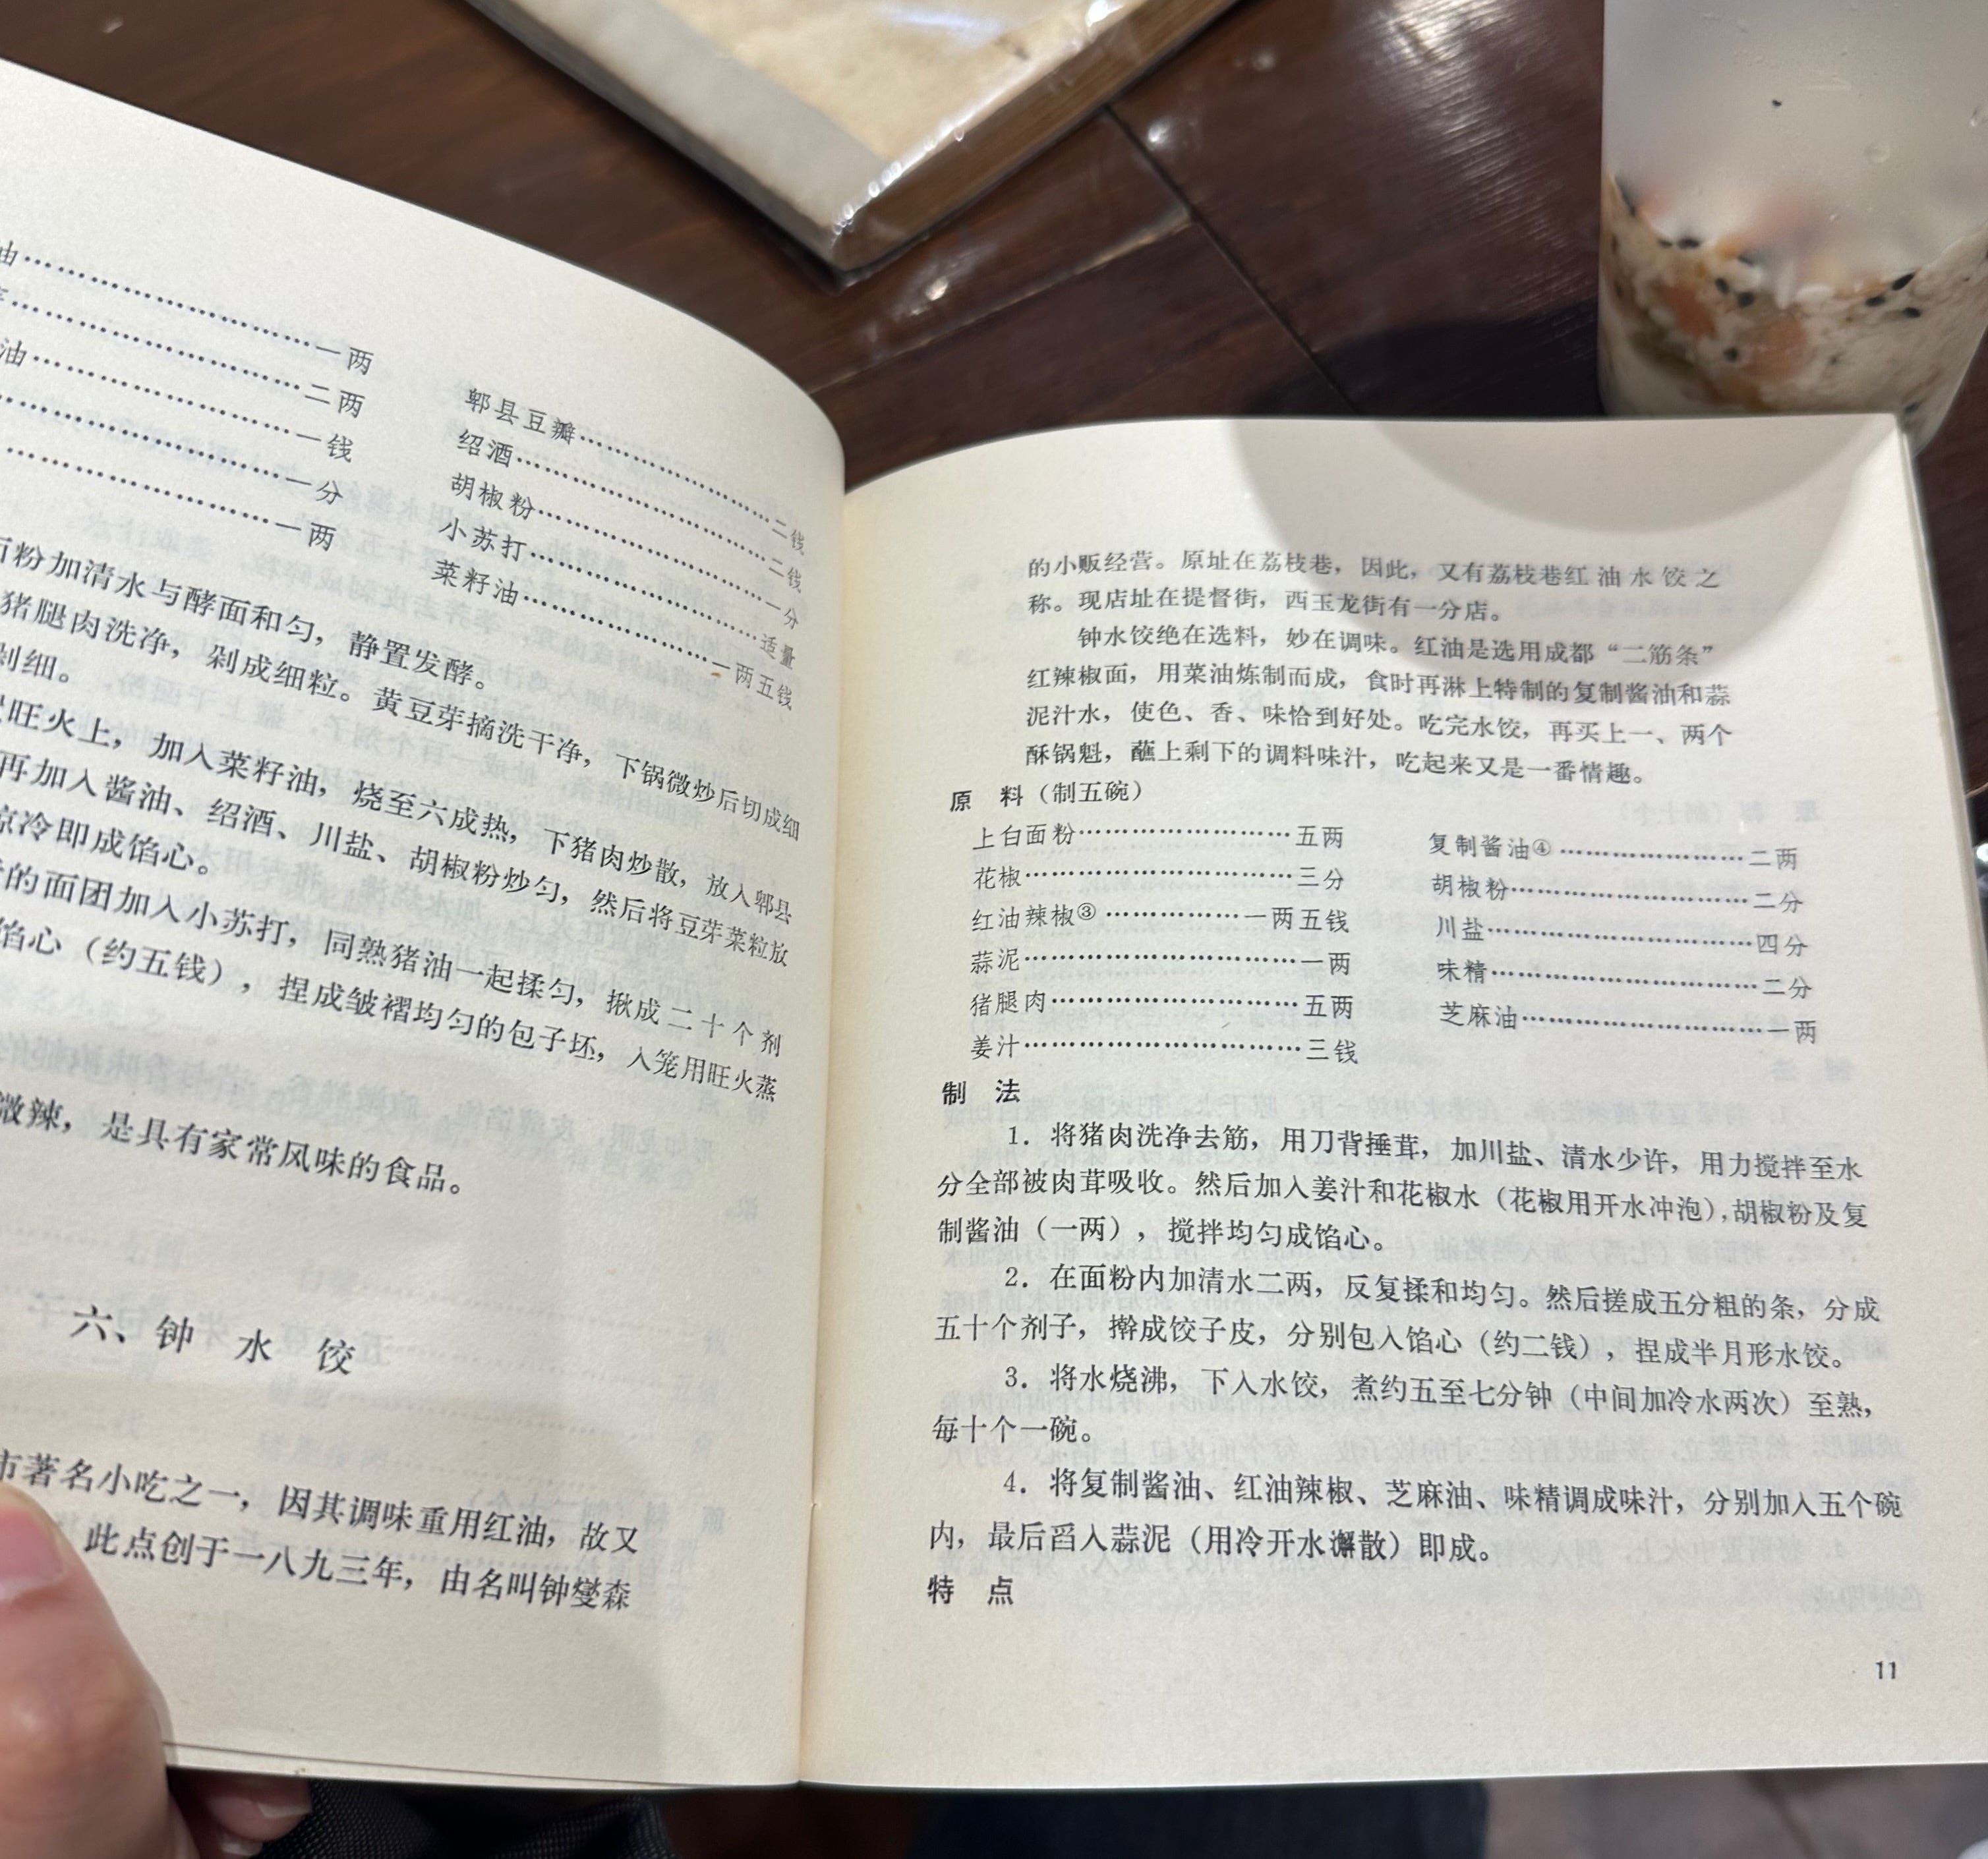 油……………………一两
……………………二两
油……………………一钱
……………………一分
……………………一两
郫县豆瓣……………………二钱
绍酒……………………二钱
胡椒粉……………………一分
小苏打……………………适量
菜籽油……………………一两五钱
面粉加清水与酵面和匀，静置发酵。
猪腿肉洗净，剁成细粒。黄豆芽摘洗干净，下锅微炒后切成细
剁细。
置旺火上，加入菜籽油，烧至六成热，下猪肉炒散，放入郫县
再加入酱油、绍酒、川盐、胡椒粉炒匀，然后将豆芽菜粒放
晾冷即成馅心。
的面团加入小苏打，同熟猪油一起揉匀，揪成二十个剂
馅心（约五钱），捏成皱褶均匀的包子坯，入笼用旺火蒸
微辣，是具有家常风味的食品。
六、钟水饺
市著名小吃之一，因其调味重用红油，故又
此点创于一八九三年，由名叫钟燮森
的小贩经营。原址在荔枝巷，因此，又有荔枝巷红油水饺之
称。现店址在提督街，西玉龙街有一分店。
钟水饺绝在选料，妙在调味。红油是选用成都“二筋条”
红辣椒面，用菜油炼制而成，食时再淋上特制的复制酱油和蒜
泥汁水，使色、香、味恰到好处。吃完水饺，再买上一、两个
酥锅魁，蘸上剩下的调料味汁，吃起来又是一番情趣。
原　料（制五碗）
上白面粉……………………五两
花椒……………………三分
红油辣椒③……………一两五钱
蒜泥……………………一两
猪腿肉……………………五两
姜汁……………………三钱
复制酱油④……………………二两
胡椒粉……………………二分
川盐……………………四分
味精……………………二分
芝麻油……………………一两
制　法
1．将猪肉洗净去筋，用刀背捶茸，加川盐、清水少许，用力搅拌至水
分全部被肉茸吸收。然后加入姜汁和花椒水（花椒用开水冲泡），胡椒粉及复
制酱油（一两），搅拌均匀成馅心。
2．在面粉内加清水二两，反复揉和均匀。然后搓成五分粗的条，分成
五十个剂子，擀成饺子皮，分别包入馅心（约二钱），捏成半月形水饺。
3．将水烧沸，下入水饺，煮约五至七分钟（中间加冷水两次）至熟，
每十个一碗。
4．将复制酱油、红油辣椒、芝麻油、味精调成味汁，分别加入五个碗
内，最后舀入蒜泥（用冷开水澥散）即成。
特　点
11